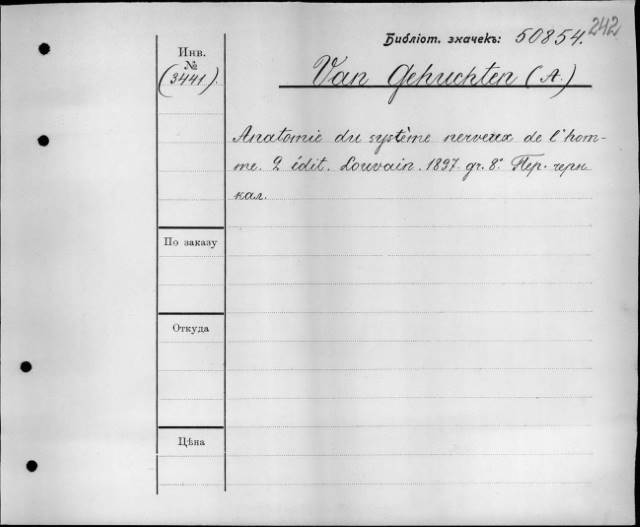 242
Библіот. значекъ: 50854.
Инв.
№
(3441).
Van Gehuchten (A.)
Anatomie du système nerveux de l'hom-
me. 2 édit. Louvain. 1897. gr. 8°. Пер. черн.
кал.
По заказу
Откуда
Цѣна